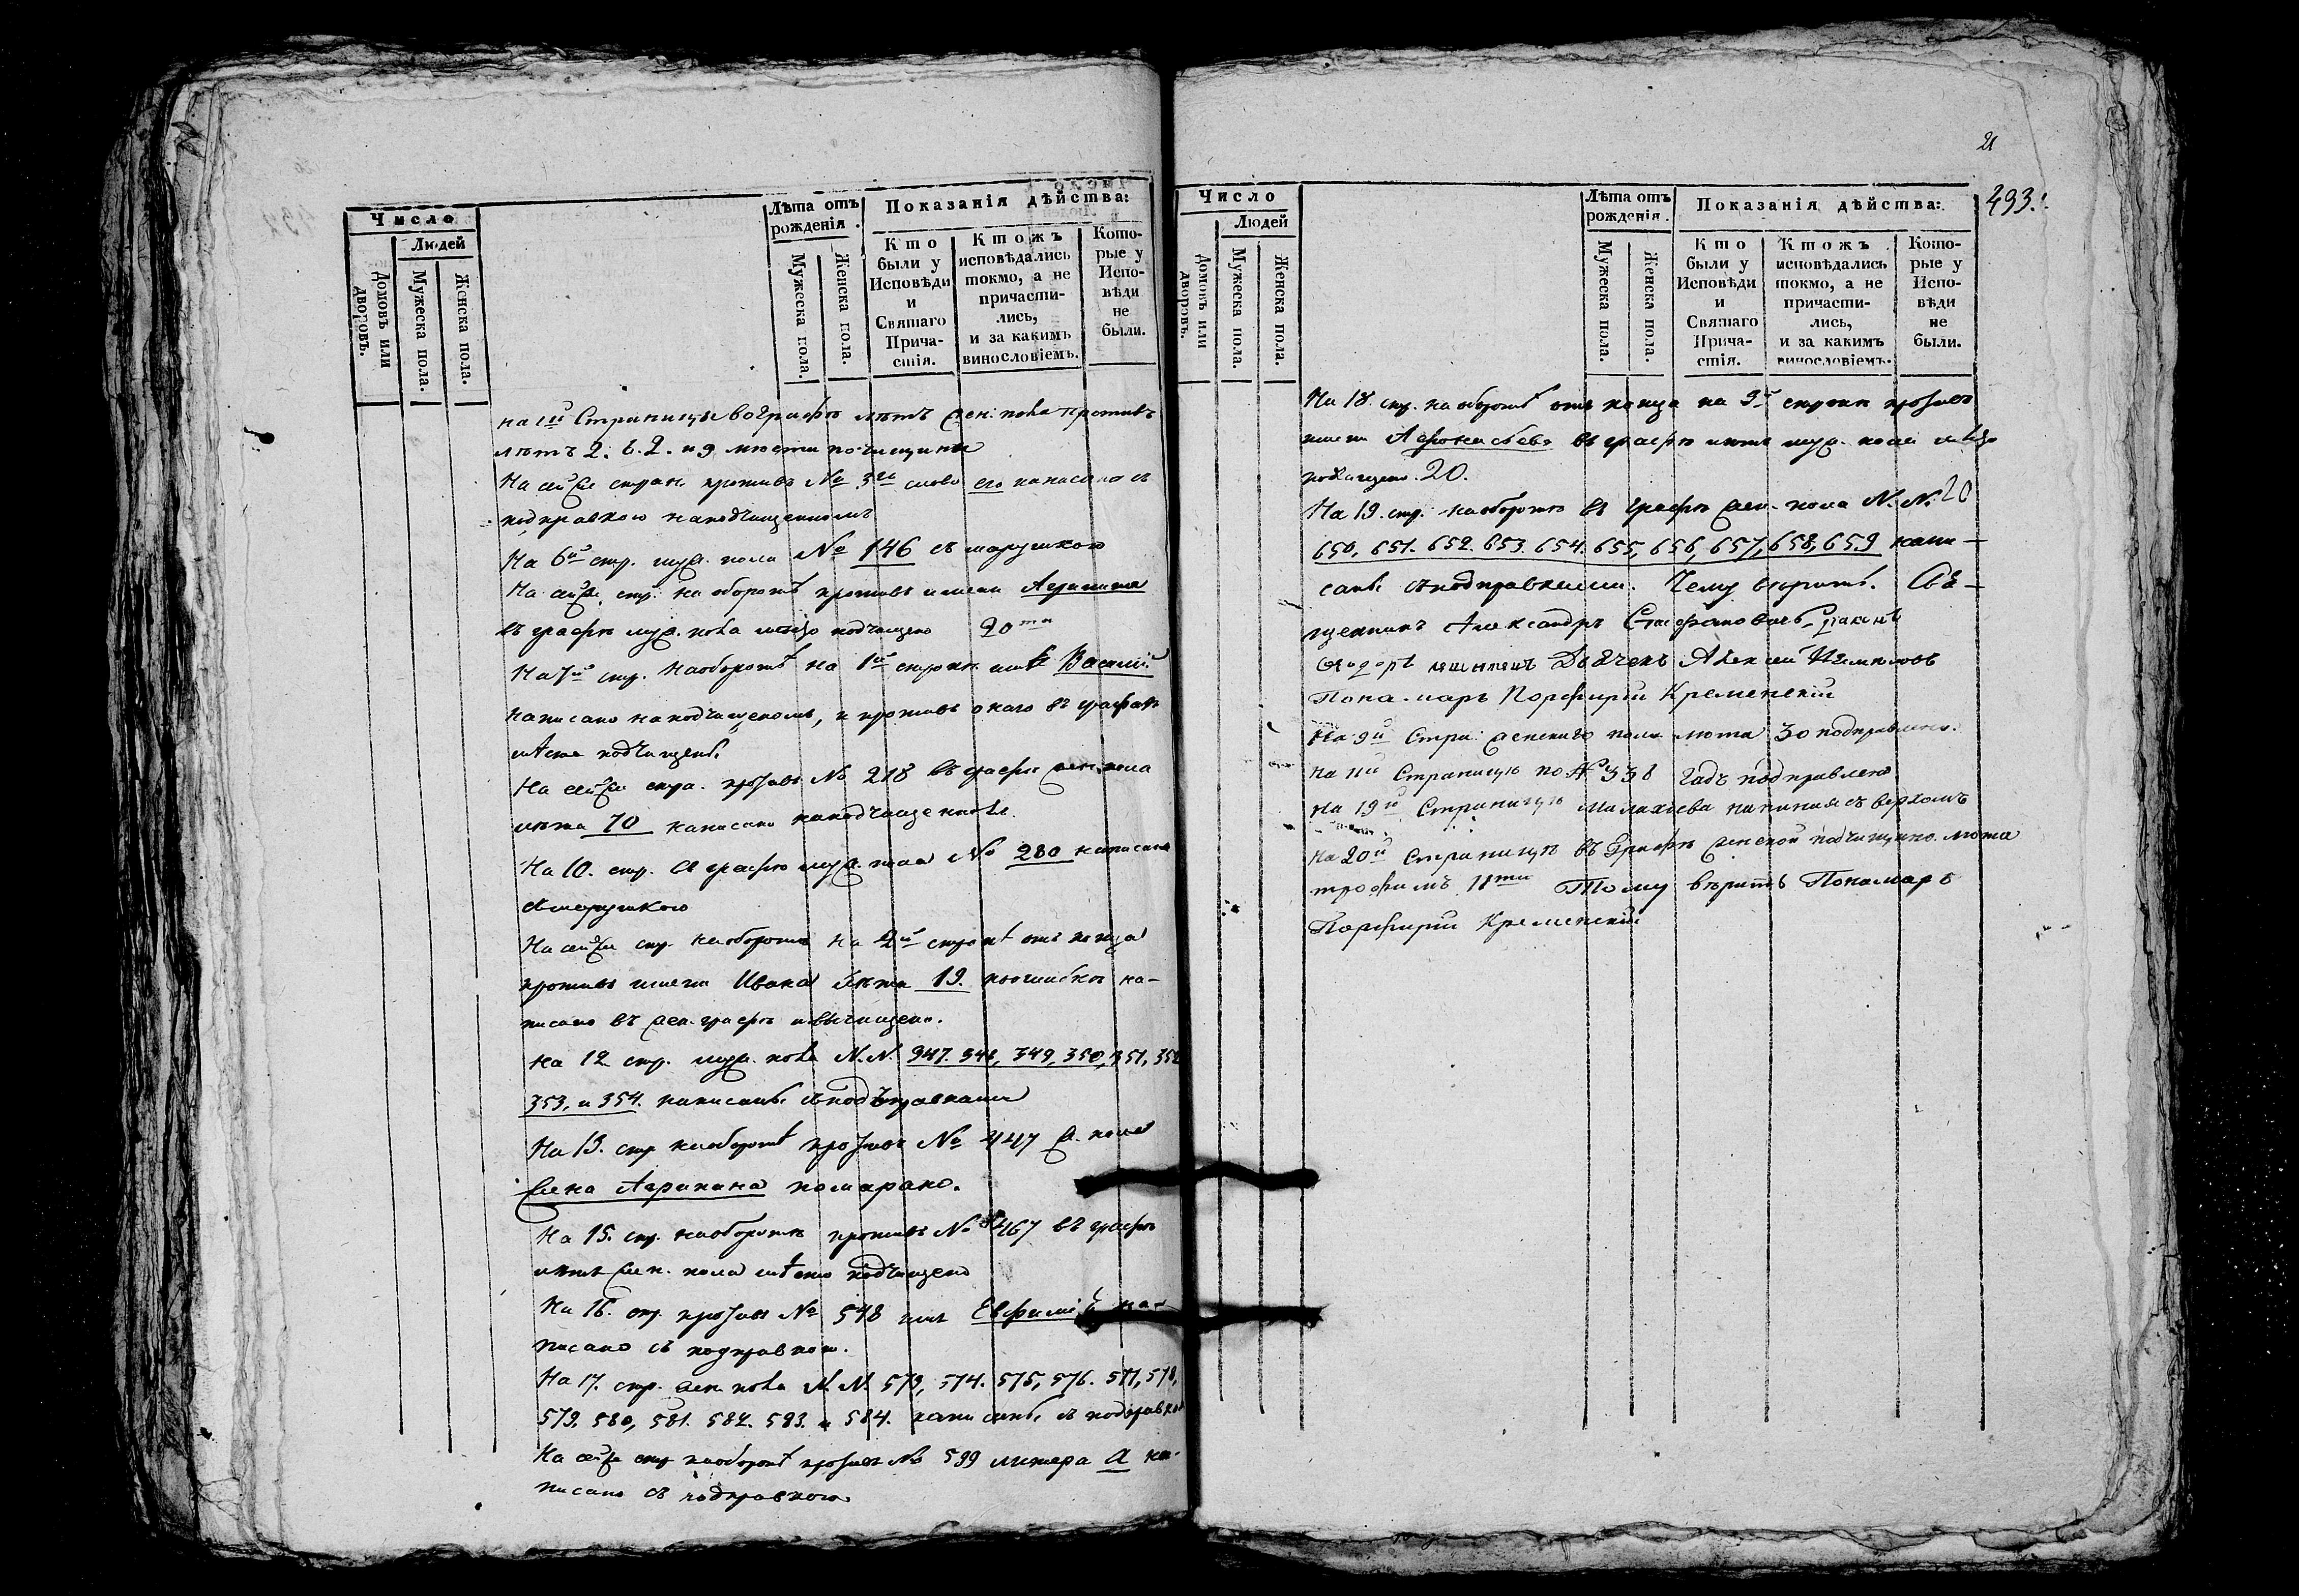 Число
Людей
Домовъ или дворовъ.
Мужеска пола.
Женска пола.
Лѣта отъ рожденія.
Мужеска пола.
Женска пола.
Показанія дѣйства:
Кто были у Исповѣди и Святаго Причастія.
Ктожъ исповѣдались токмо, а не причастились, и за какимъ винословіемъ.
Которые у Исповѣди не были.
на 1й Страницы въ Графѣ лѣтъ жен: пола противъ
лѣтъ 2. 6. 2. и 9 мѣста почищены
На сей же стран. противъ № 3го слово его написано съ
подправкою наподчищенномъ
На 6й стр. муж. пола № 146 съ марушкою
На сей же стр. на оборотѣ противъ имени Агрипина
въ графѣ муж. пола мѣсто подчищено 20ти
На 7й стр. наоборотѣ на 1й строкѣ имя Василій
написано наподчищеномъ, и противъ онаго въ графахъ
мѣста подчищены.
На сей же стра. противъ № 218 въ графѣ жен. пола
лѣта 70 написано наподчищенномъ.
На 10. стр. въ графѣ муж. пола № 280 написано
съ марушкою
На сей же стр. наоборотѣ на 2й строкѣ отъ конца
противъ имени Ивана лѣта 19. поошибкѣ на-
писано въ жен. графѣ и вычищено.
На 12 стр. муж. пола N.N. 347. 348, 349, 350, 351, 352
353, и 354. написаны съ подправками
На 13. стр. наоборотѣ противъ № 447 ж. пола
жена Агрипина помарано.
На 15. стр. наоборотѣ противъ № 467 въ графѣ
лѣтъ жен. пола мѣсто подчищено
На 16. стр. противъ № 548 имя Евфимій на-
писано съ подправкою.
На 17. стр. жен. пола N.N. 573, 574. 575, 576. 577, 578,
579. 580, 581. 582. 583. и 584. написаны съ подправкою
На сей же стр. наоборотѣ противъ № 599 литера а на-
писано съ подправкою
21
493.
Число
Людей
Домовъ или дворовъ.
Мужеска пола.
Женска пола.
Лѣта отъ рожденія.
Мужеска пола.
Женска пола.
Показанія дѣйства:
Кто были у Исповѣди и Святаго Причастія.
Ктожъ исповѣдались токмо, а не причастились, и за какимъ винословіемъ.
Которые у Исповѣди не были.
На 18. стр. наоборотѣ отъ конца на 9й строкѣ противъ
имени Афонасьева въ графѣ лѣтъ муж. пола мѣсто
подчищено. 20.
На 19. стр. наоборотѣ въ графѣ жен. пола N.N. 20
650, 651. 652. 653. 654. 655, 656, 657, 658, 659 напи-
саны съ подправками. Чему вѣрить. Свя-
щенникъ Александръ Стефановъ Діаконъ
Дьячекъ Алексей
Пономарь Порфирій Кременскій
На 9й Стра: женскаго пола лѣта 30 подправлено.
на 11й Страницѣ по № 338 Гадъ подправлено
на 19й Страницѣ Малахіева написаня съ верхомъ
на 20й Страницѣ въ Графѣ женской подчищено лѣта
трофимъ 11ти Тому вѣрить Пономарь
Порфирій Кременскій